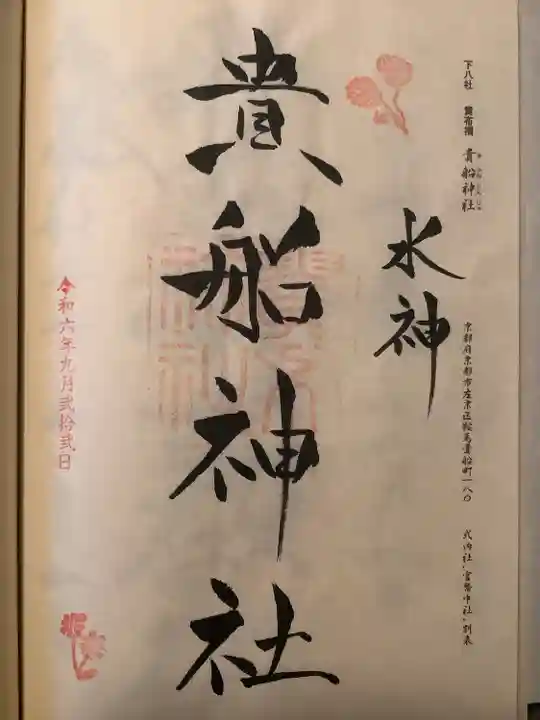 下八社 貴布禰 貴船神社
京都府京都市左京区鞍馬貴船町一八〇
式内社、官幣中社、別表
水神
貴船神社
令和六年九月弐拾弐日